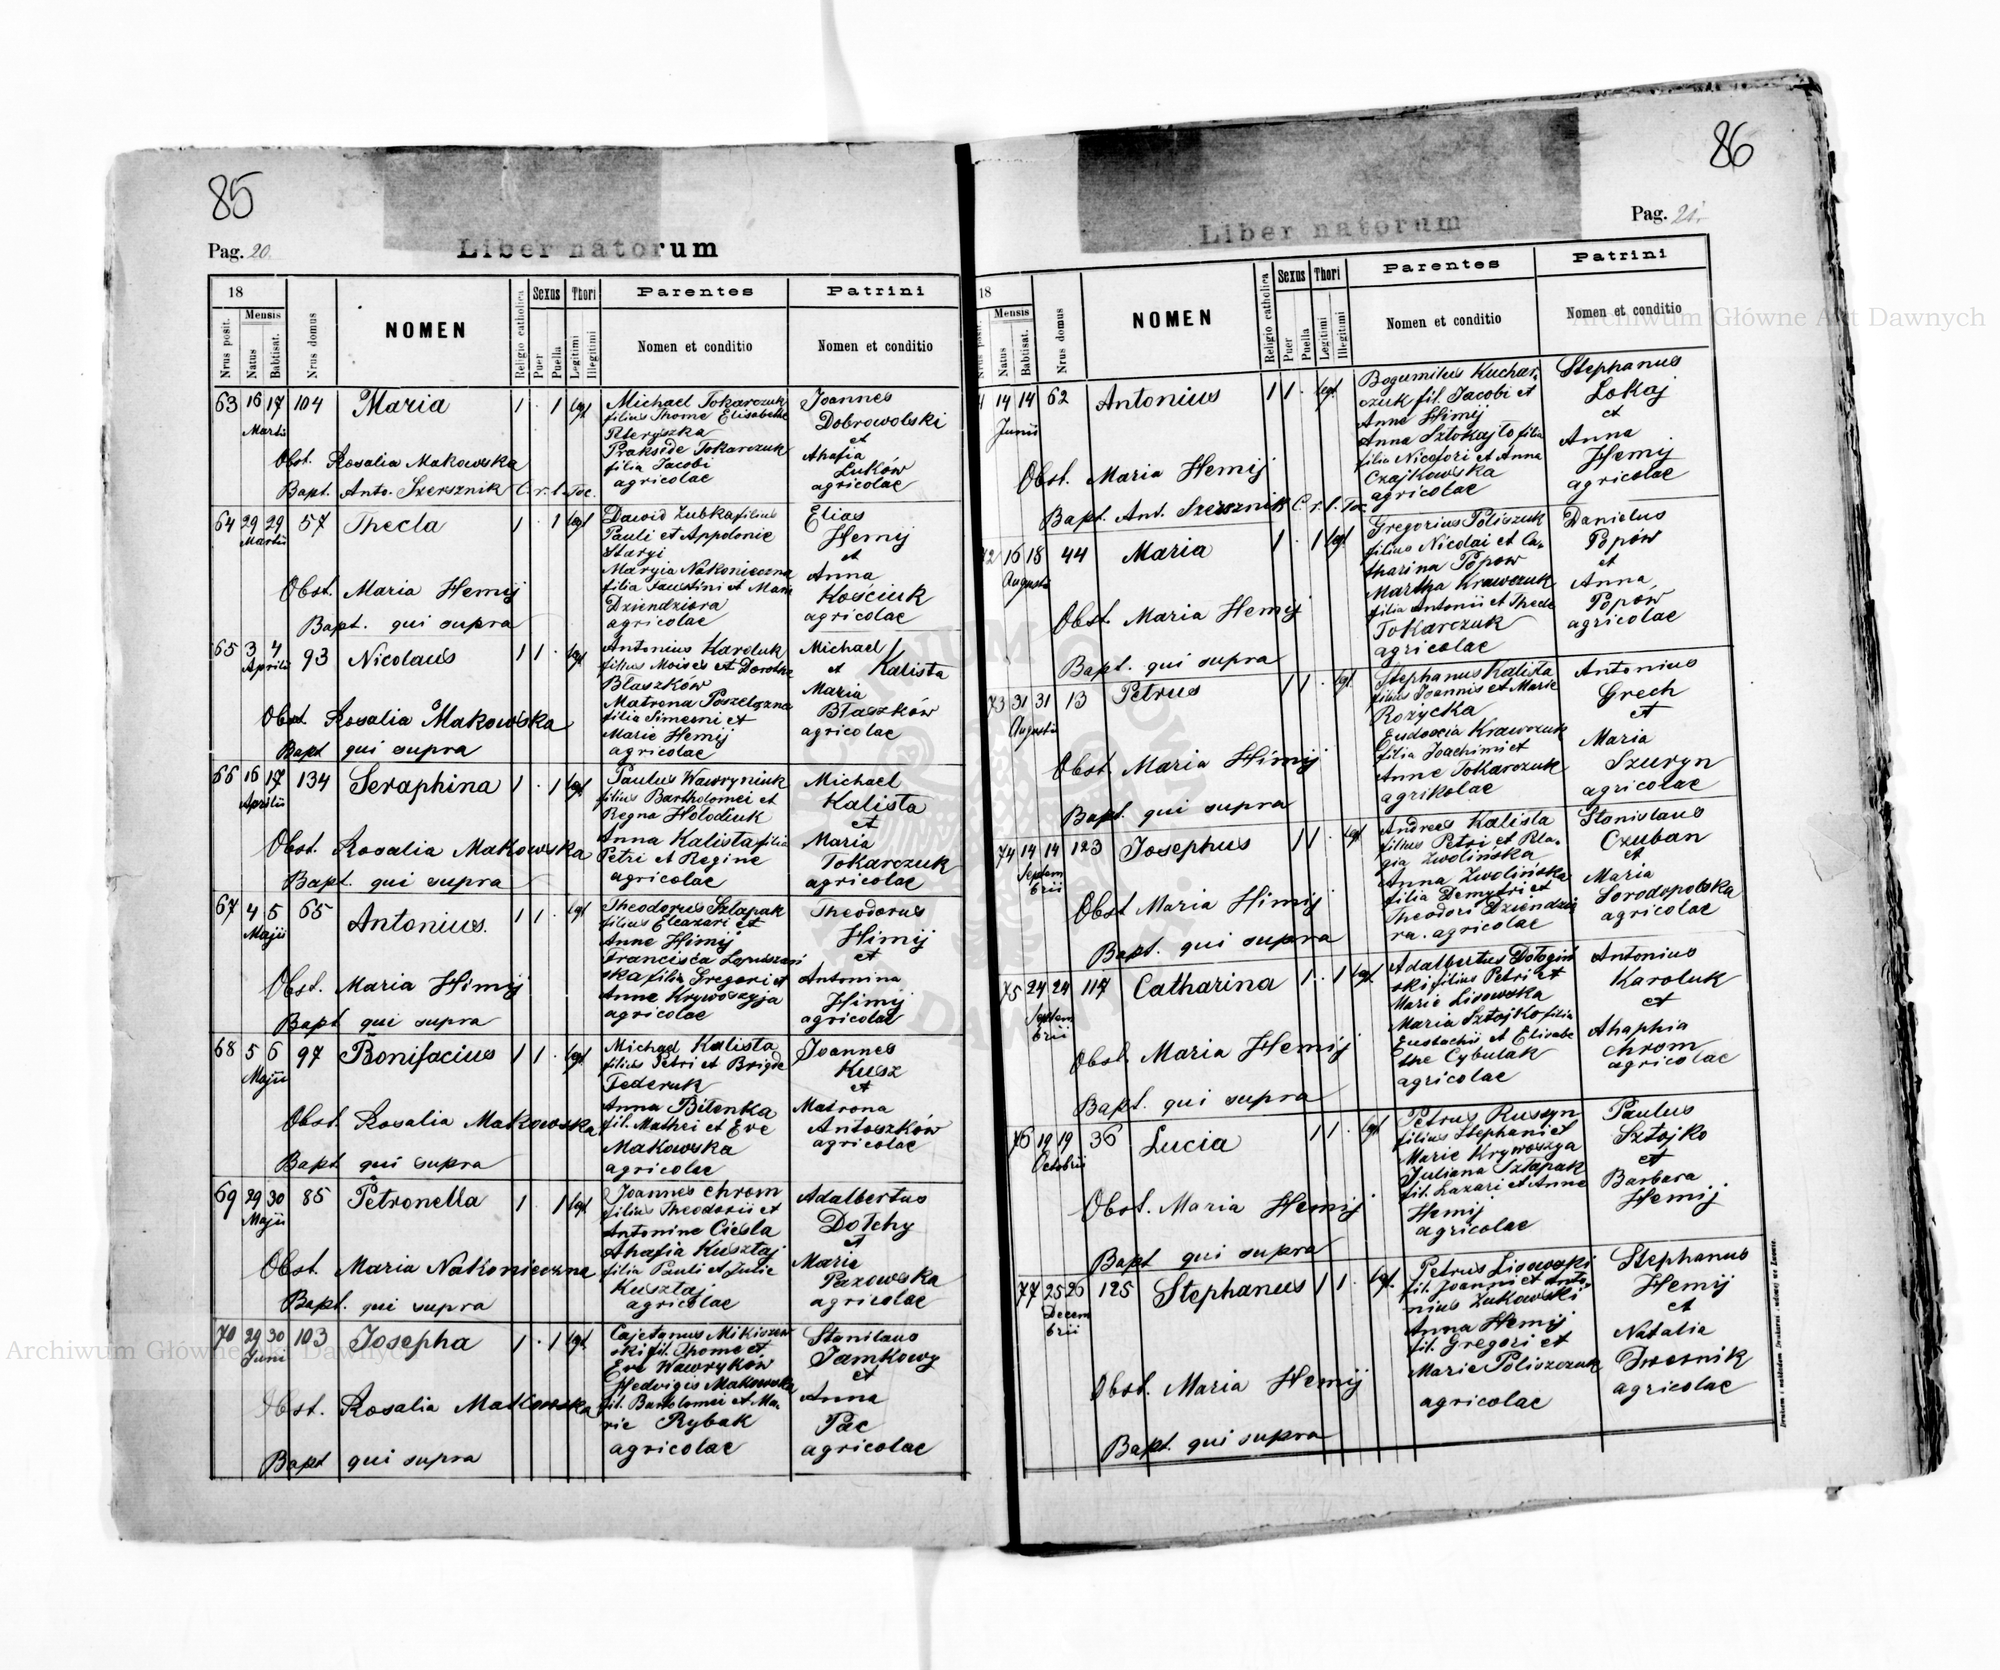 85
Pag. 20.
Liber natorum
18
Mensis
Nrus posit.
Natus
Babtisat.
Nrus domus
NOMEN
Religio catholica
Sexus
Puer
Puella
Thori
Legitimi
Illegitimi
Parentes
Nomen et conditio
Patrini
Nomen et conditio
63 16 17 104 Maria 1 . 1 legt.
Martii
Michael Tokarczuk
filius Thome Elisabethe
Praksede Tokarczuk
filia Jacobi
agricolae
Joannes
Dobrowolski
et
Ahafia
Luków
agricolae
Obst. Rosalia Makowska
Bapt. Anto. Szersznik C. r. l. Toc.
64 29 29 57 Thecla 1 . 1 legt
Martii
Dawid Zubka filius
Pauli et Appolonie
Staryi
Maryia Nakonieczna
filia Faustini et Marie
Dziendziora
agricolae
Elias
Hemij
et
Anna
Kościuk
agricolae
Obst. Maria Hemij
Bapt. qui supra
65 3 4 93 Nicolaus 1 1 . legt
Aprilii
Antonius Karoluk
filius Moises et Dorothe
Błaszków
Matrona
filia Simeoni et
Marie Hemij
agricolae
Michael
et Kalista
Maria
Błaszków
agricolae
Obst. Rosalia Makowska
Bapt qui supra
66 16 17 134 Seraphina 1 . 1 legt
Aprilii
Paulus Wawryniuk
filius Bartholomei et
Regna Holodiuk
Anna Kalista filia
Petri et Regine
agricolae
Michael
Kalista
et
Maria
Tokarczuk
agricolae
Obst. Rosalia Makowska
Bapt. qui supra
67 4 5 65 Antonius. 1 1 . legt
Majii
Theodorus Szlapak
filius Eleazari et
Anne Himij
Francisca
ska filia Gregori et
Anne Krywoszyja
agricolae
Theodorus
Himij
et
Antonina
Himij
agricolae
Obst. Maria Himij
Bapt qui supra
68 5 6 97 Bonifacius 1 1 . legt
Majii
Michael Kalista
filius Petri et Brigde
Federuk
Anna Bilenka
fil. Mathei et Eve
Makowska
agricolae
Joannes
Kusz
et
Matrona
Antoszków
agricolae
Obst. Rosalia Makowska
Bapt qui supra
69 29 30 85 Petronella 1 . 1 legt
Majii
Joannes Chrom
filius Theodorii et
Antonine Ciesla
Ahafia Kusztaj
filia Pauli et Julie
Kusztaj
agricolae
Adalbertus
Dołchy
et
Marie
Pazowska
agricolae
Obst. Maria Nakonieczna
Bapt. qui supra
70 29 30 103 Josepha 1 . 1 legt
Juni
Cajetanus Mikiszew
ski fil. Thome et
Eve Wawryków
Hedvigis Makowska
fil. Bartolomei et Ma
rie Rybak
agricolae
Stanilaus
Jamkowy
et
Anna
Pac
agricolae
Obst. Rosalia Makowska
Bapt qui supra
86
Pag. 21.
Liber natorum
18
Mensis
Nrus posit.
Natus
Babtisat.
Nrus domus
NOMEN
Religio catholica
Sexus
Puer
Puella
Thori
Legitimi
Illegitimi
Parentes
Nomen et conditio
Patrini
Nomen et conditio
14 14 62 Antonius 1 1 . legt.
Junii
Bogumilus Kuchar
czuk fil. Jacobi et
Anne Himij
Anna Sztokajło filia
filia Nicofori et Anna
Czajkowska
agricolae
Stephanus
Lokaj
et
Anna
Hemij
agricolae
Obst. Maria Hemij
Bapt. Ant. Szersznik C. r. l. Toc.
72 16 18 44 Maria 1 . 1 legt
Augusti
Gregorius Poliszuk
filius Nicolai et Ca
tharina Popow
Martha Krawczuk
filia Antonii et Thecle
Tokarczuk
agricolae
Danielus
Popów
et
Anna
Popow
agricolae
Obst. Maria Hemij
Bapt. qui supra
73 31 31 13 Petrus 1 1 . legt.
Augusti
Stephanus Kalista
filius Joannis et Marie
Rożycka
Eudoxia Krawczuk
filia Joachimi et
Anne Tokarczuk
agrikolae
Antonius
Grech
et
Maria
Szuryn
agricolae
Obst. Maria Himij
Bapt. qui supra
74 14 14 123 Josephus 1 1 . legt
Septem
brii
Andreas Kalista
filius Petri et Pela
gia Zwolińska
Anna Zwolińska
filia Demytri et
Theodori Dziendzio
ra. agricolae
Stanislaus
Czuban
et
Maria
Sorodopolska
agricolae
Obst Maria Himij
Bapt. qui supra
75 24 24 117 Catharina 1 . 1 legt.
Septem
brii
Adalbertus Dołogiń
ski filius Petri et
Marie Lisowska
Maria Sztojko filia
Eustachii et Elisabe
the Cybulak
agricolae
Antonius
Karoluk
et
Ahaphia
Chrom
agricolae
Obst. Maria Hemij
Bapt. qui supra
76 19 19 36 Lucia 1 1 . legt
Octobrii
Petrus Russyn
filius Stephani et
Marie Krywoszya
Juliana Szłapak
fil. Lazari et Anne
Hemij
agricolae
Paulus
Sztojko
et
Barbara
Hemij
Obst. Maria Hemij
Bapt qui supra
77 25 26 125 Stephanus 1 1 . legt.
Decem
brii
Petrus Lisowski
fil. Joanni et Anto
nius Zukowski
Anna Hemij
fil. Gregori et
Marie Poliszczuk
agricolae
Stephanus
Hemij
et
Natalia
agricolae
Obst. Maria Hemij
Bapt. qui supra
Archiwum Główne Akt Dawnych
Archiwum Główne Akt Dawnych